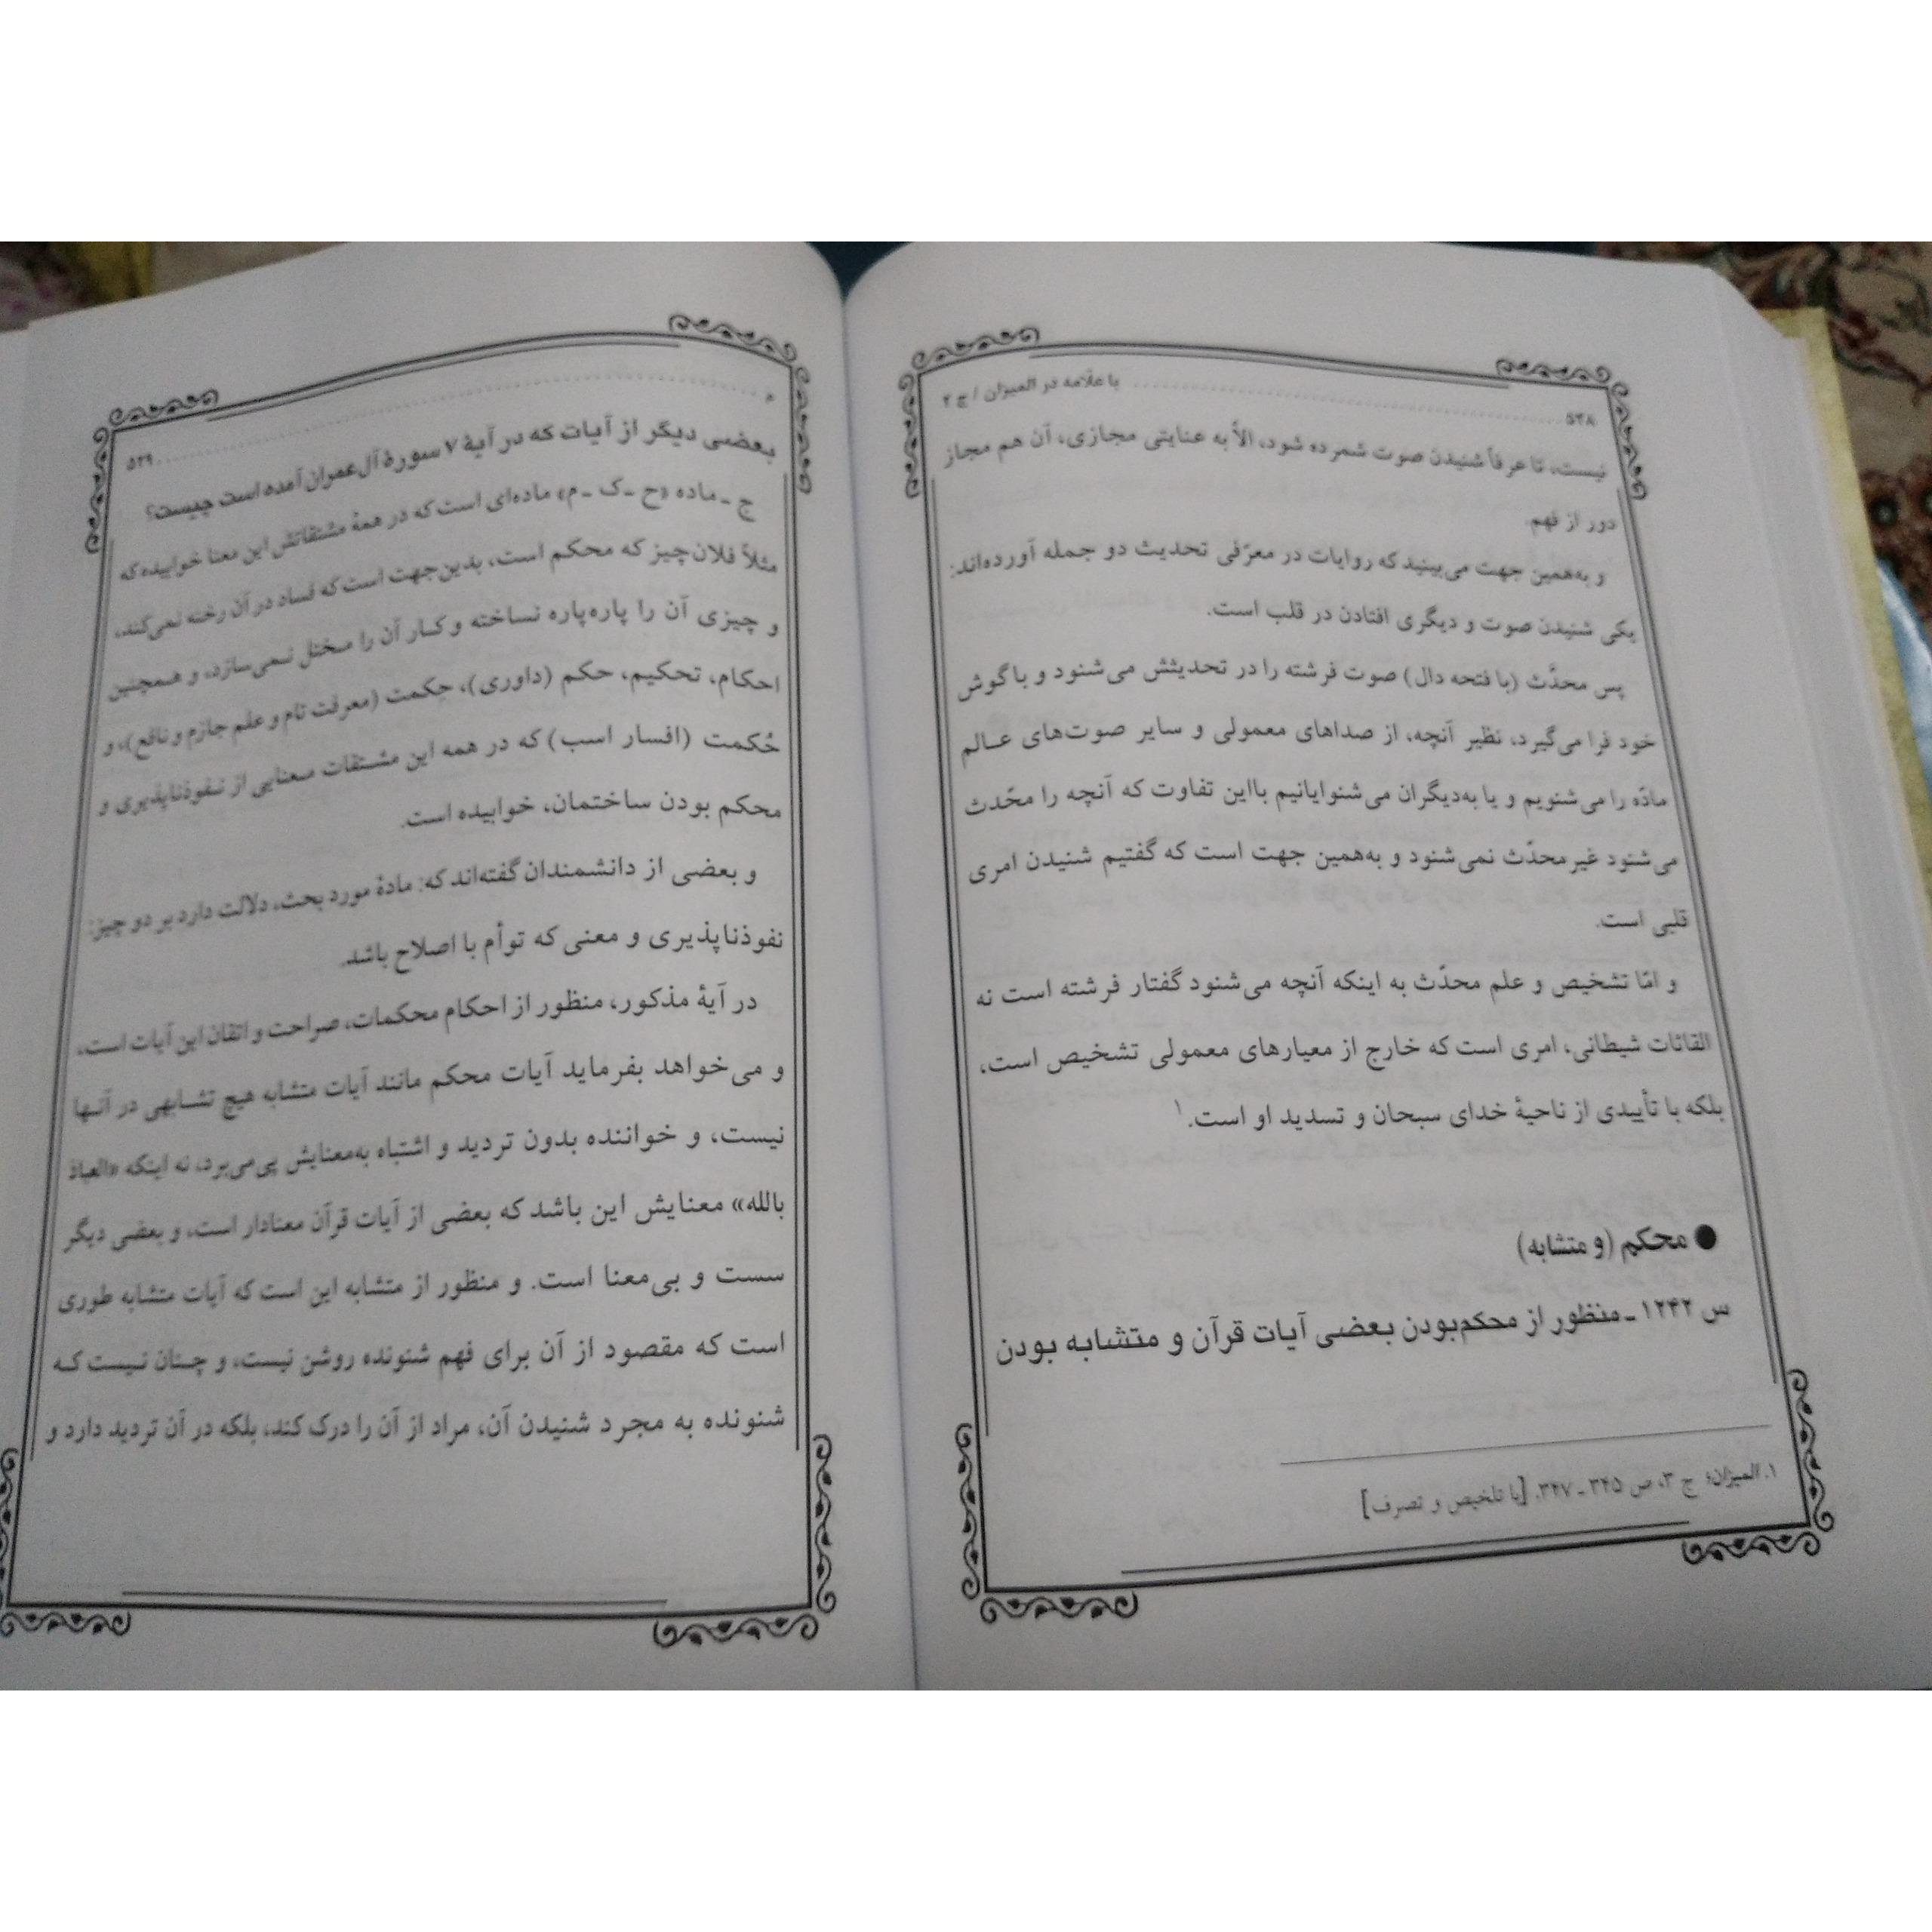 ۵۳۸ با علّامه در المیزان / ج ۲
نیست، تا عرفاً شنیدن صوت شمرده شود، الاّ به عنایتی مجازی، آن هم مجاز
دور از فهم.
و به‌همین جهت می‌بینید که روایات در معرّفی تحدیث دو جمله آورده‌اند:
یکی شنیدن صوت و دیگری افتادن در قلب است.
پس محدَّث (با فتحه دال) صوت فرشته را در تحدیثش می‌شنود و با گوش
خود فرا می‌گیرد، نظیر آنچه، از صداهای معمولی و سایر صوت‌های عالم
مادّه را می‌شنویم و یا به‌دیگران می‌شنوایانیم بااین تفاوت که آنچه را محّدث
می‌شنود غیرمحدّث نمی‌شنود و به‌همین جهت است که گفتیم شنیدن امری
قلبی است.
و امّا تشخیص و علم محدّث به اینکه آنچه می‌شنود گفتار فرشته است نه
القائات شیطانی، امری است که خارج از معیارهای معمولی تشخیص است،
بلکه با تأییدی از ناحیهٔ خدای سبحان و تسدید او است.۱
● محکم (و متشابه)
س ۱۲۴۲ ـ منظور از محکم‌بودن بعضی آیات قرآن و متشابه بودن
۱. المیزان؛ ج ۳، ص ۳۴۵ ـ ۳۴۷. [با تلخیص و تصرف]
۵۳۹
بعضی دیگر از آیات که در آیهٔ ۷ سورهٔ آل‌عمران آمده است چیست؟
ج ـ ماده «ح ـ ک ـ م» ماده‌ای است که در همهٔ مشتقاتش این معنا خوابیده که
مثلاً فلان چیز که محکم است، بدین‌جهت است که فساد در آن رخنه نمی‌کند،
و چیزی آن را پاره‌پاره نساخته و کار آن را مختل نمی‌سازد، و همچنین
احکام، تحکیم، حکم (داوری)، حِکمت (معرفت تام و علم جازم و نافع)، و
حُکمت (افسار اسب) که در همه این مشتقات معنایی از نفوذناپذیری و
محکم بودن ساختمان، خوابیده است.
و بعضی از دانشمندان گفته‌اند که: مادهٔ مورد بحث، دلالت دارد بر دو چیز:
نفوذناپذیری و معنی که توأم با اصلاح باشد.
در آیهٔ مذکور، منظور از احکام محکمات، صراحت و اتقان این آیات است،
و می‌خواهد بفرماید آیات محکم مانند آیات متشابه هیچ تشابهی در آنها
نیست، و خواننده بدون تردید و اشتباه به‌معنایش پی‌می‌برد، نه اینکه «العیاذ
بالله» معنایش این باشد که بعضی از آیات قرآن معنادار است، و بعضی دیگر
سست و بی‌معنا است. و منظور از متشابه این است که آیات متشابه طوری
است که مقصود از آن برای فهم شنونده روشن نیست، و چنان نیست که
شنونده به مجرد شنیدن آن، مراد از آن را درک کند، بلکه در آن تردید دارد و